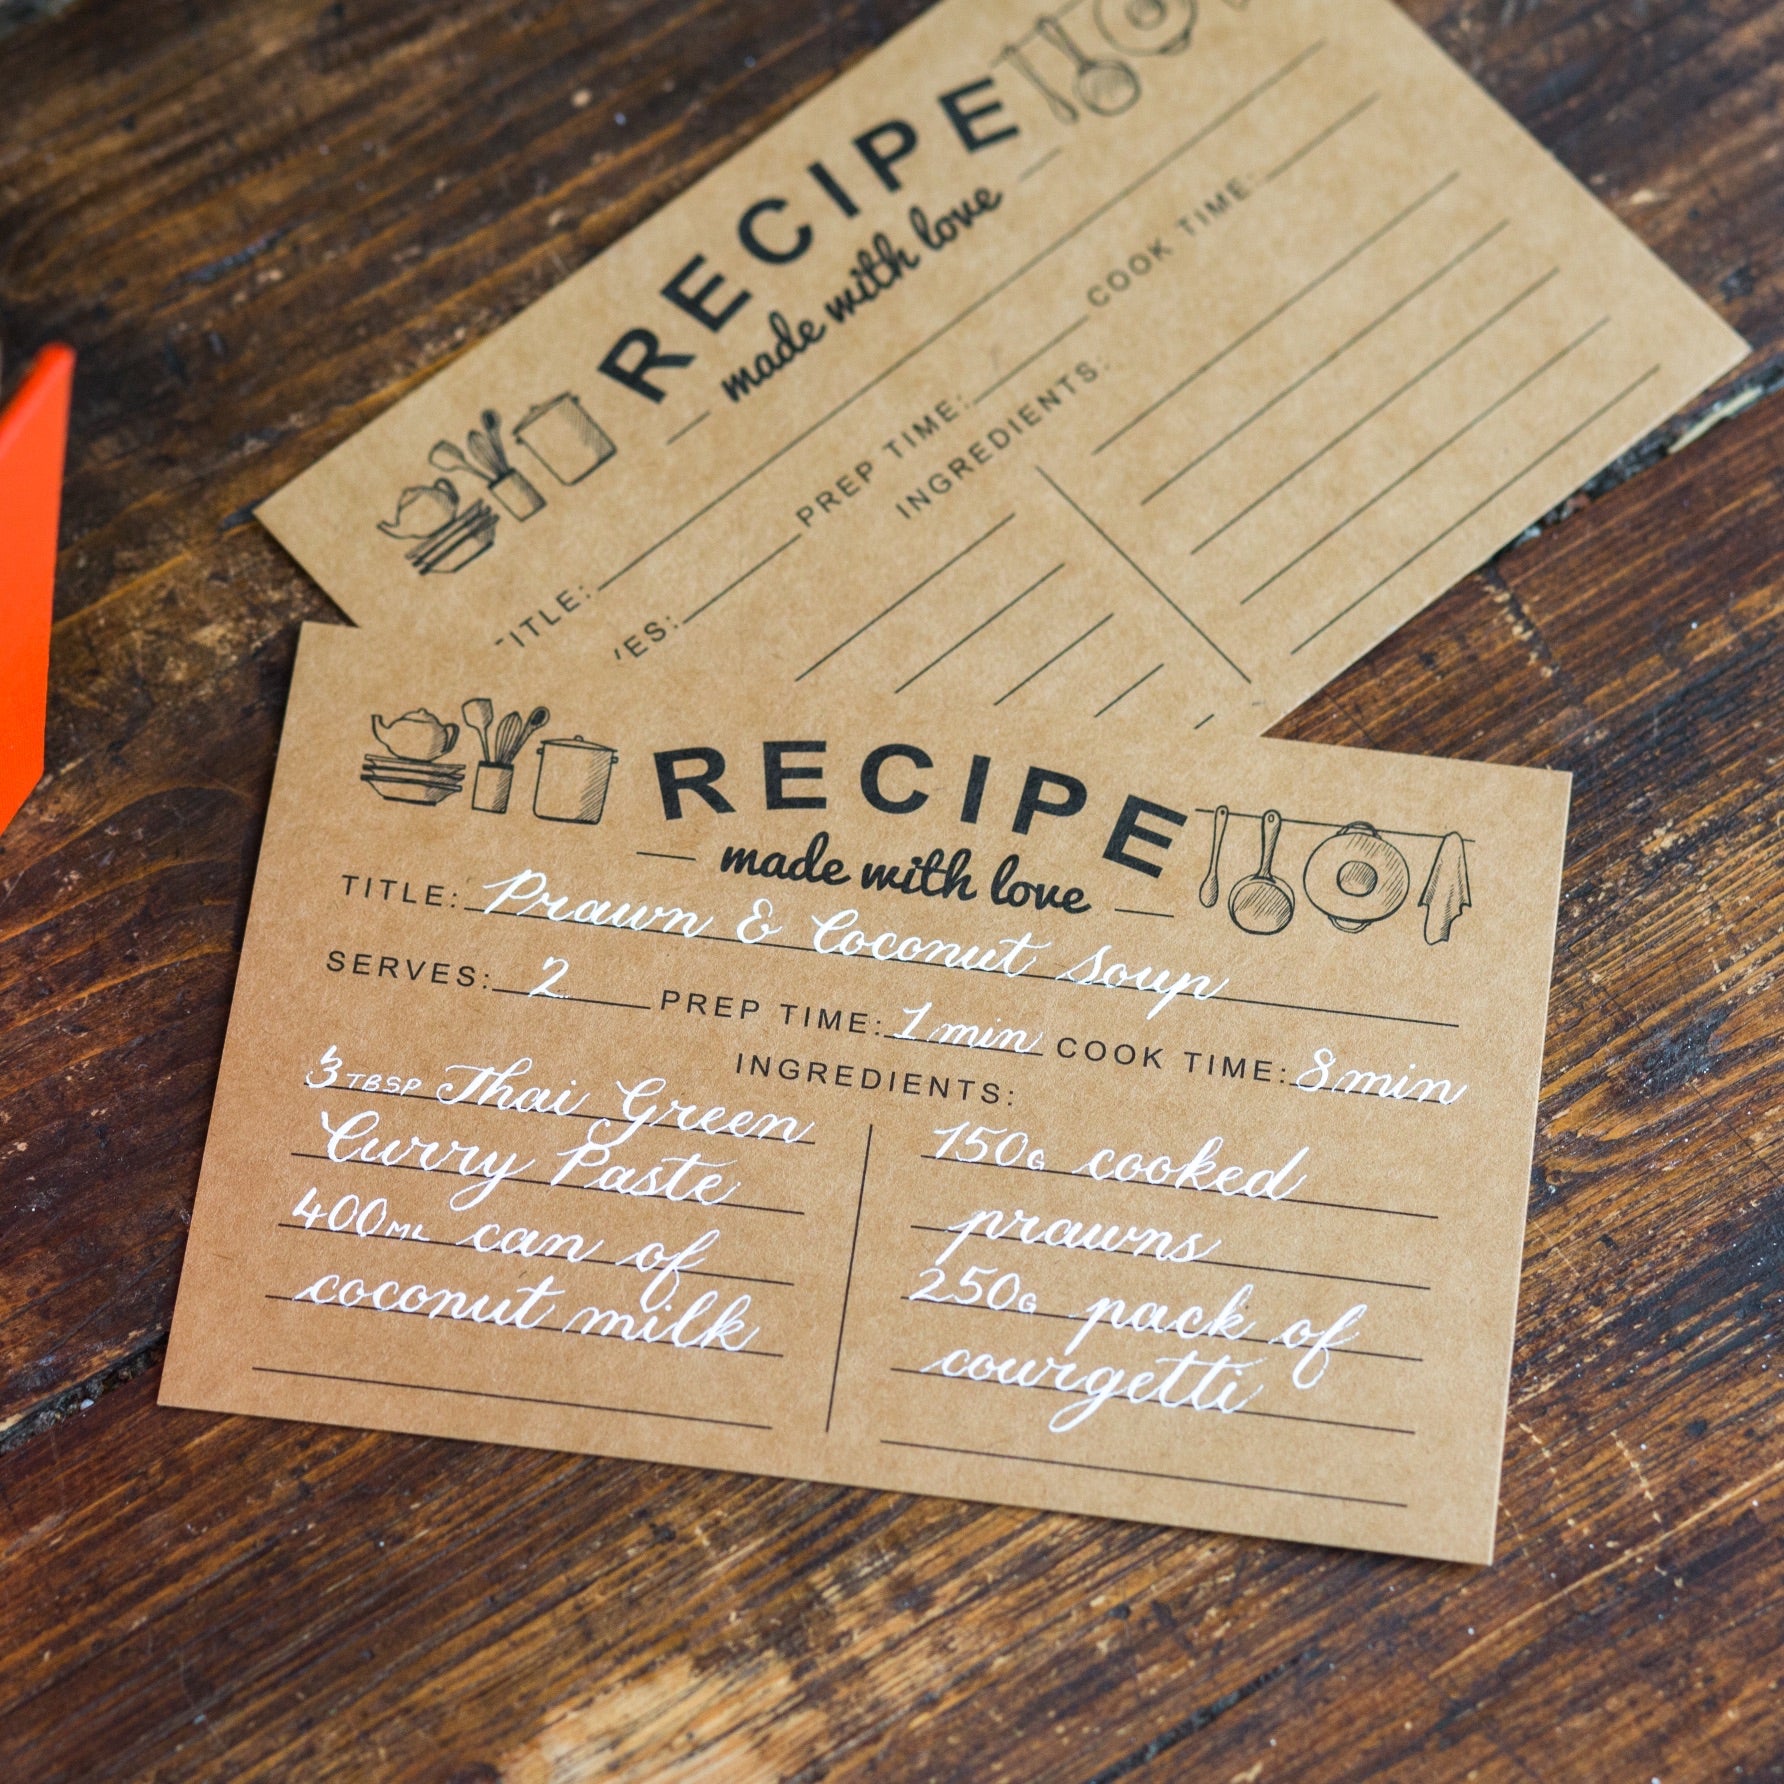 RECIPE
made with love
TITLE:
PREP TIME: COOK TIME:
INGREDIENTS:
RECIPE
made with love
TITLE: Prawn & Coconut Soup
SERVES: 2 PREP TIME: 1 min COOK TIME: 8 min
INGREDIENTS:
3 TBSP Thai Green
Curry Paste
400ML can of
coconut milk
150G cooked
prawns
250G pack of
courgetti